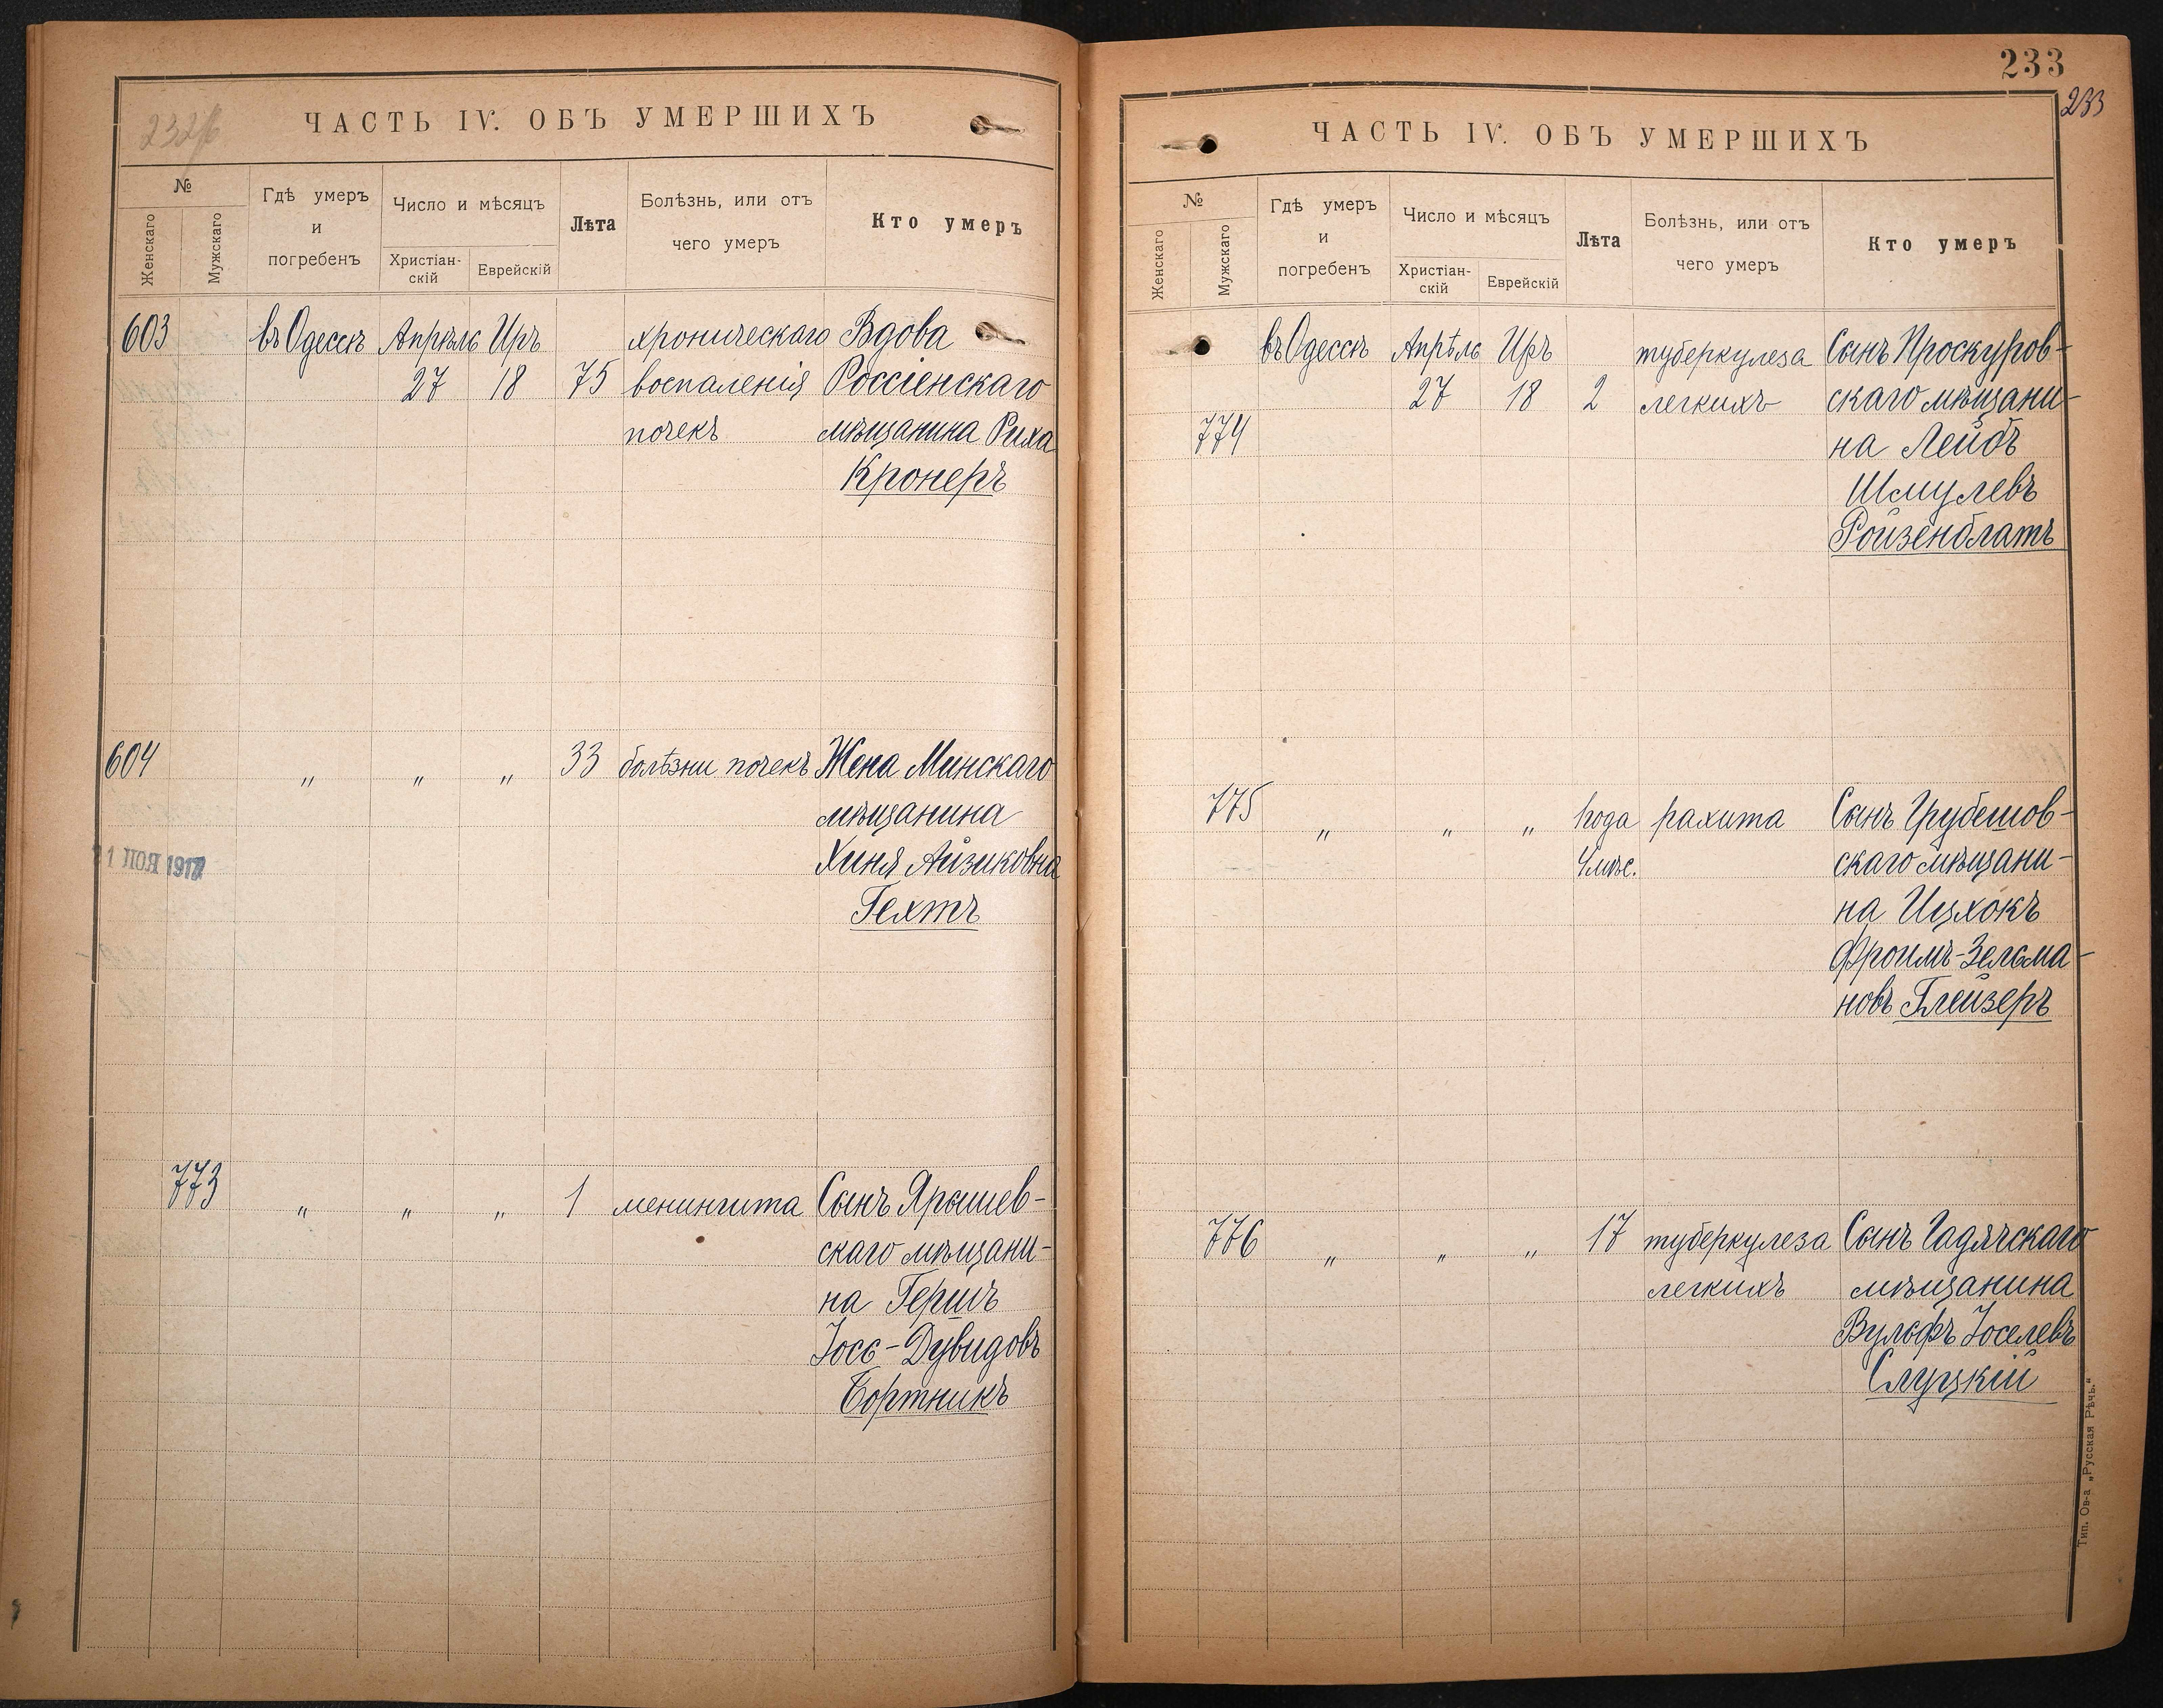 232 об
ЧАСТЬ IV. ОБЪ УМЕРШИХЪ
№
Женскаго
Мужскаго
Гдѣ умеръ
и
погребенъ
Число и мѣсяцъ
Христіан-
скій
Еврейскій
Лѣта
Болѣзнь, или отъ
чего умеръ
Кто умеръ
603 въ Одессѣ Апрѣль Иръ хроническаго Вдова
27 18 75 воспаленія Россіенскаго
почекъ мѣщанина Риха
Кронеръ
604 " " " 33 болѣзни почекъ Жена Минскаго
мѣщанина
Хиня Айзиковна
Гехтъ
773 " " " 1 менингита Сынъ Ярышев-
скаго мѣщани-
на Гершъ
Іосъ-Дувидовъ
Бортникъ
233
233
ЧАСТЬ IV. ОБЪ УМЕРШИХЪ
№
Женскаго
Мужскаго
Гдѣ умеръ
и
погребенъ
Число и мѣсяцъ
Христіан-
скій
Еврейскій
Лѣта
Болѣзнь, или отъ
чего умеръ
Кто умеръ
въ Одессѣ Апрѣль Иръ туберкулеза Сынъ Проскуров-
27 18 2 легкихъ скаго мѣщани-
774 на Лейбъ
Шмулевъ
Ройзенблатъ
775 " " " 1 года рахита Сынъ Грубешов-
4 мѣс. скаго мѣщани-
на Ицхокъ
Фроимъ-Зельма-
новъ Глейзеръ
776 " " " 17 туберкулеза Сынъ Гадячскаго
легкихъ мѣщанина
Вульфъ Іоселевъ
Слуцкій
Тип. Ов-а „Русская Рѣчь."